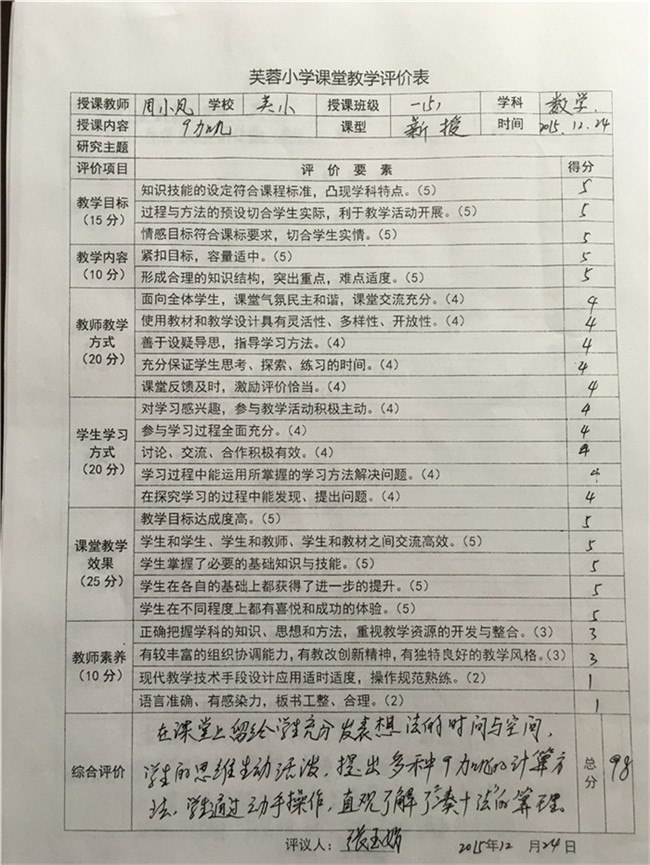 芙蓉小学课堂教学评价表
授课教师 周小凤 学校 芙小 授课班级 一(5) 学科 数学
授课内容 9加几 课型 新授 时间 2015.12.24
研究主题
评价项目 评价要素 得分
教学目标（15分） 知识技能的设定符合课程标准，凸现学科特点。（5） 5
过程与方法的预设切合学生实际，利于教学活动开展。（5） 5
情感目标符合课标要求，切合学生实情。（5） 5
教学内容（10分） 紧扣目标，容量适中。（5） 5
形成合理的知识结构，突出重点，难点适度。（5） 5
教师教学方式（20分） 面向全体学生，课堂气氛民主和谐，课堂交流充分。（4） 4
使用教材和教学设计具有灵活性、多样性、开放性。（4） 4
善于设疑导思，指导学习方法。（4） 4
充分保证学生思考、探索、练习的时间。（4） 4
课堂反馈及时，激励评价恰当。（4） 4
学生学习方式（20分） 对学习感兴趣，参与教学活动积极主动。（4） 4
参与学习过程全面充分。（4） 4
讨论、交流、合作积极有效。（4） 4
学习过程中能运用所掌握的学习方法解决问题。（4） 4
在探究学习的过程中能发现、提出问题。（4） 4
课堂教学效果（25分） 教学目标达成度高。（5） 5
学生和学生、学生和教师、学生和教材之间交流高效。（5） 5
学生掌握了必要的基础知识与技能。（5） 5
学生在各自的基础上都获得了进一步的提升。（5） 5
学生在不同程度上都有喜悦和成功的体验。（5） 5
教师素养（10分） 正确把握学科的知识、思想和方法，重视教学资源的开发与整合。（3） 3
有较丰富的组织协调能力，有教改创新精神，有独特良好的教学风格。（3） 3
现代教学技术手段设计应用适时适度，操作规范熟练。（2） 1
语言准确、有感染力，板书工整、合理。（2） 1
综合评价 在课堂上留给学生充分发表想法的时间与空间，
学生的思维生动活泼，提出多种9加几的计算方
法，学生通过动手操作，直观了解了“凑十法”的算理。
总分 98
评议人：张玉娟 2015年12月24日